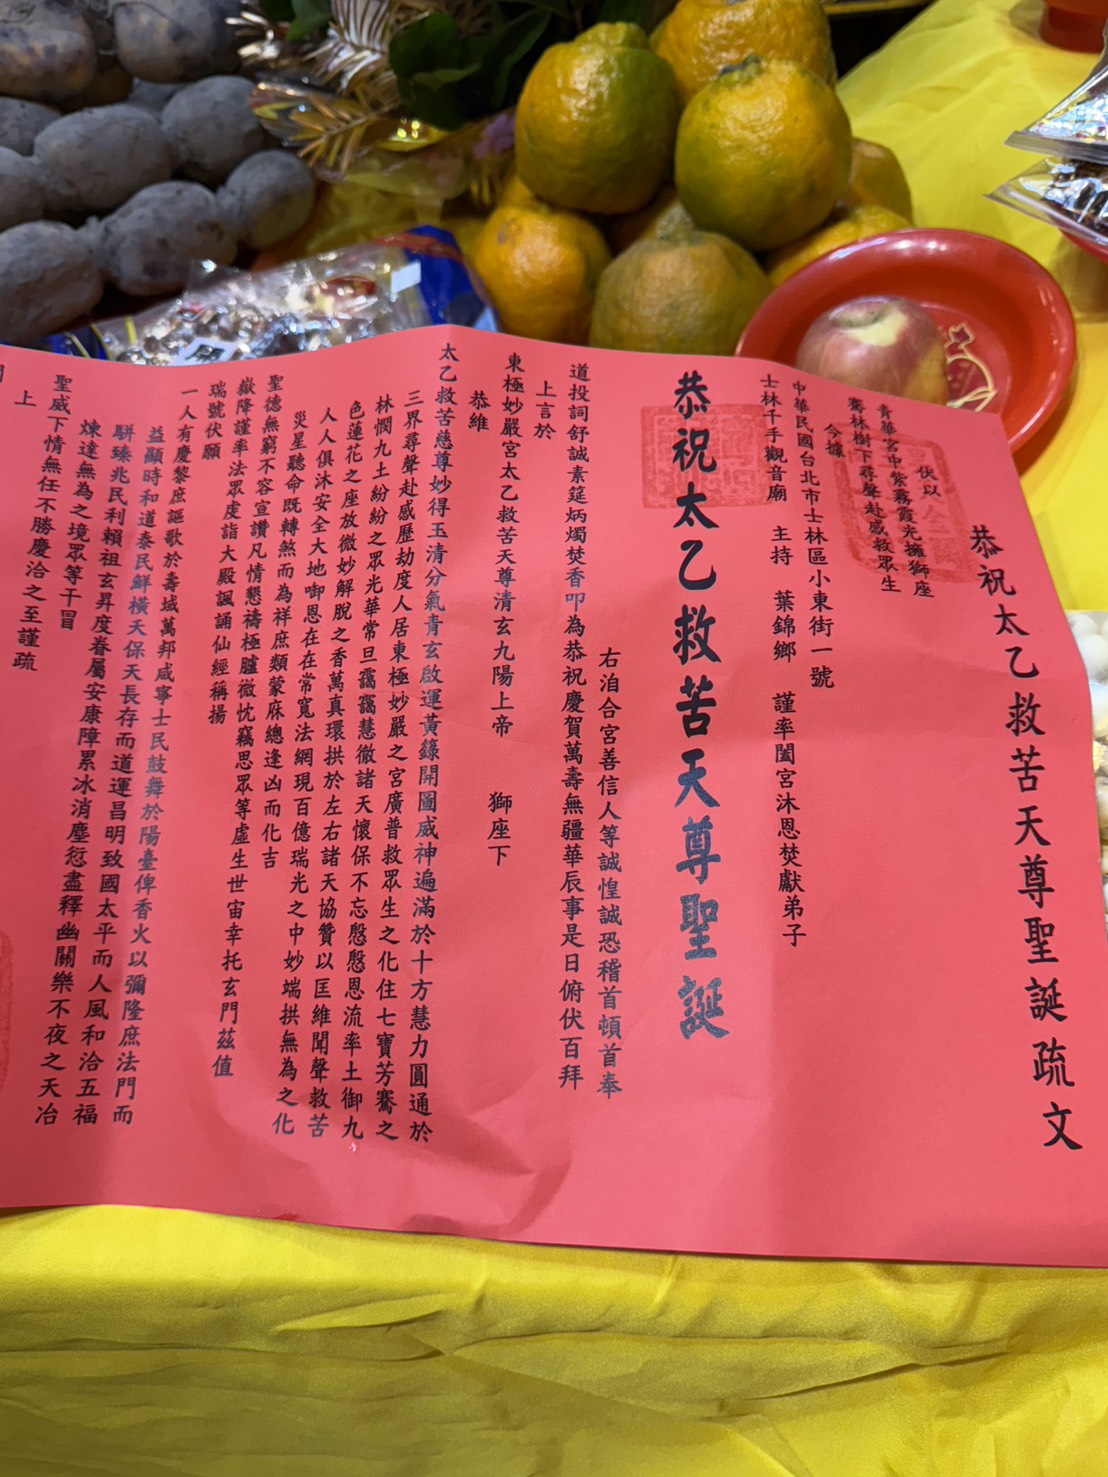 恭祝太乙救苦天尊聖誕疏文
伏以
青華宮中紫霧霞光擁獅座
騫林樹下尋聲赴感救眾生
今據
中華民國台北市士林區小東街一號
士林千手觀音廟 主持 葉錦鄉 謹率闔宮沐恩焚獻弟子
恭祝太乙救苦天尊聖誕
右洎合宮善信人等誠惶誠恐稽首頓首奉
道投詞舒誠素筵炳燭焚香叩為恭祝慶賀萬壽無疆華辰事是日俯伏百拜
上言於
東極妙嚴宮太乙救苦天尊清玄九陽上帝 獅座下
恭維
太乙救苦慈尊妙得玉清分氣青玄啟運黃籙開圖威神遍滿於十方慧力圓通於
三界尋聲赴感歷劫度人居東極妙嚴之宮廣普救眾生之化住七寶芳騫之
林憫九土紛紛之眾光華常旦靄靄慧徹諸天懷保不忘慇慇恩流率土御九
色蓮花之座放微妙解脫之香萬真環拱於左右諸天協贊以匡維聞聲救苦
人人俱沐安全大地啣恩在在常寬法網現百億瑞光之中妙端拱無為之化
災星聽命既轉煞而為祥庶類蒙庥總逢凶而化吉
聖德無窮不容宣讚凡情懇禱極臚微忱竊思眾等虛生世宙幸托玄門茲值
嶽降謹率法眾虔詣大殿諷誦仙經稱揚
瑞號伏願
一人有慶黎庶謳歌於壽域萬邦咸寧士民鼓舞於陽臺俾香火以彌隆庶法門而
益顯時和道泰民鮮橫夭保天長存而道運昌明致國太平而人風和洽五福
駢臻兆民利賴祖玄昇度眷屬安康障累冰消塵愆盡釋幽關樂不夜之天冶
煉達無為之境眾等干冒
聖威下情無任不勝慶洽之至謹疏
上